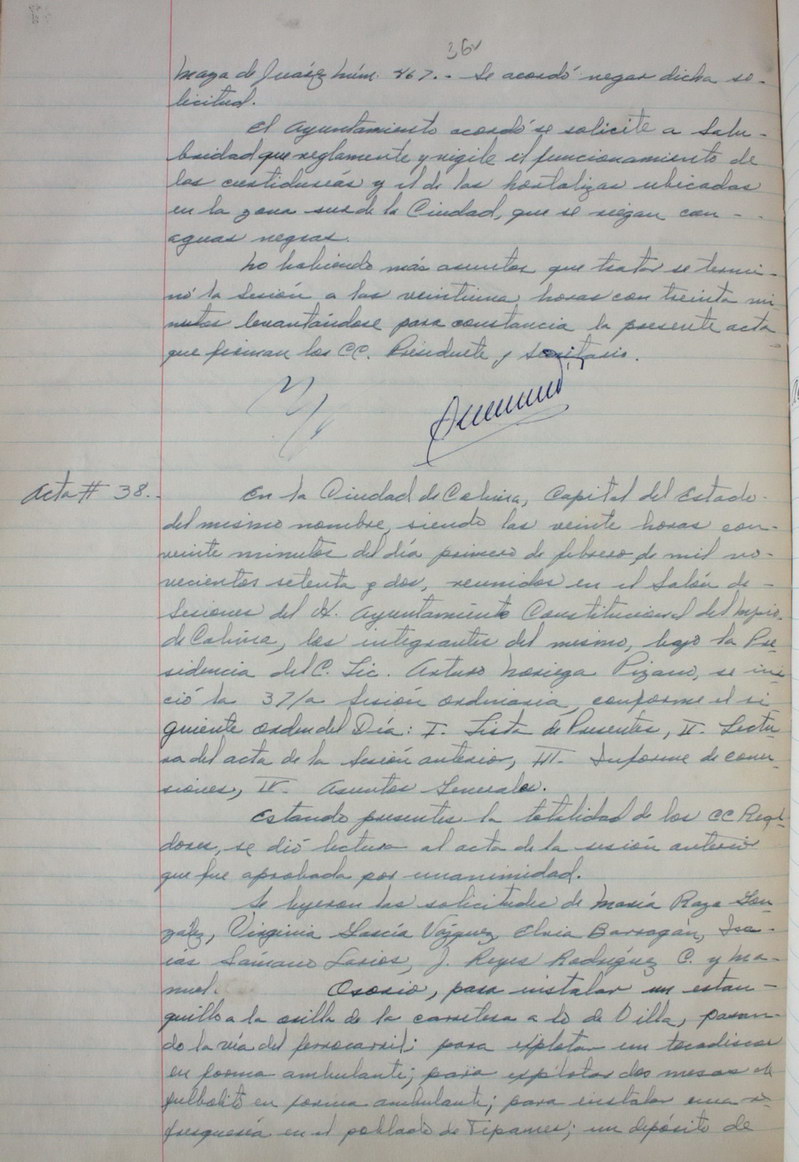 36v
maza de Juárez núm. 467.- Se acordó negar dicha so-
licitud.
El Ayuntamiento acordó se solicite a Salu-
bridad que reglamente y vigile el funcionamiento de
las curtidurías y el de las hortalizas ubicadas
en la zona sur de la Ciudad, que se riegan con -
aguas negras.
No habiendo más asuntos que tratar se termi-
nó la Sesión a las veintiuna horas con treinta mi-
nutos levantándose para constancia la presente acta
que firman los CC. Presidente y Secretario.
Acta # 38.-
En la Ciudad de Colima, Capital del Estado
del mismo nombre, siendo las veinte horas con-
veinte minutos del día primero de febrero de mil no-
vecientos setenta y dos, reunidos en el Salón de -
Sesiones del H. Ayuntamiento Constitucional del Mpio.
de Colima, los integrantes del mismo, bajo la Pre-
sidencia del C. Lic. Arturo Noriega Pizano, se ini-
ció la 37/a Sesión ordinaria, conforme el si-
guiente orden del Día: I.- Lista de Presentes, II.- Lectu-
ra del acta de la Sesión anterior, III.- Informe de comi-
siones, IV.- Asuntos Generales.
Estando presentes la totalidad de los CC Regi-
dores, se dió lectura al acta de la sesión anterior
que fue aprobada por unanimidad.
Se leyeron las solicitudes de María Raza Gon-
zález, Virginia García Vázquez, Elvia Barragán,
Larios, J. Reyes Rodríguez C. y Ma-
nuel. Osorio, para instalar un estan-
quillo a la orilla de la carretera a lo de Villa, pasan-
do la vía del ferrocarril; para explotar un tocadiscos
en forma ambulante; para explotar dos mesas de
futbolito en forma ambulante; para instalar una re-
fresquería en el poblado de Tepames; un depósito de